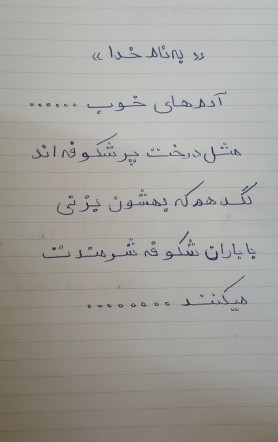 « به نام خدا »
آدم های خوب ......
مثل درخت پر شکوفه اند
لگد هم که بهشون بزنی
با باران شکوفه شرمندت
میکنند ........